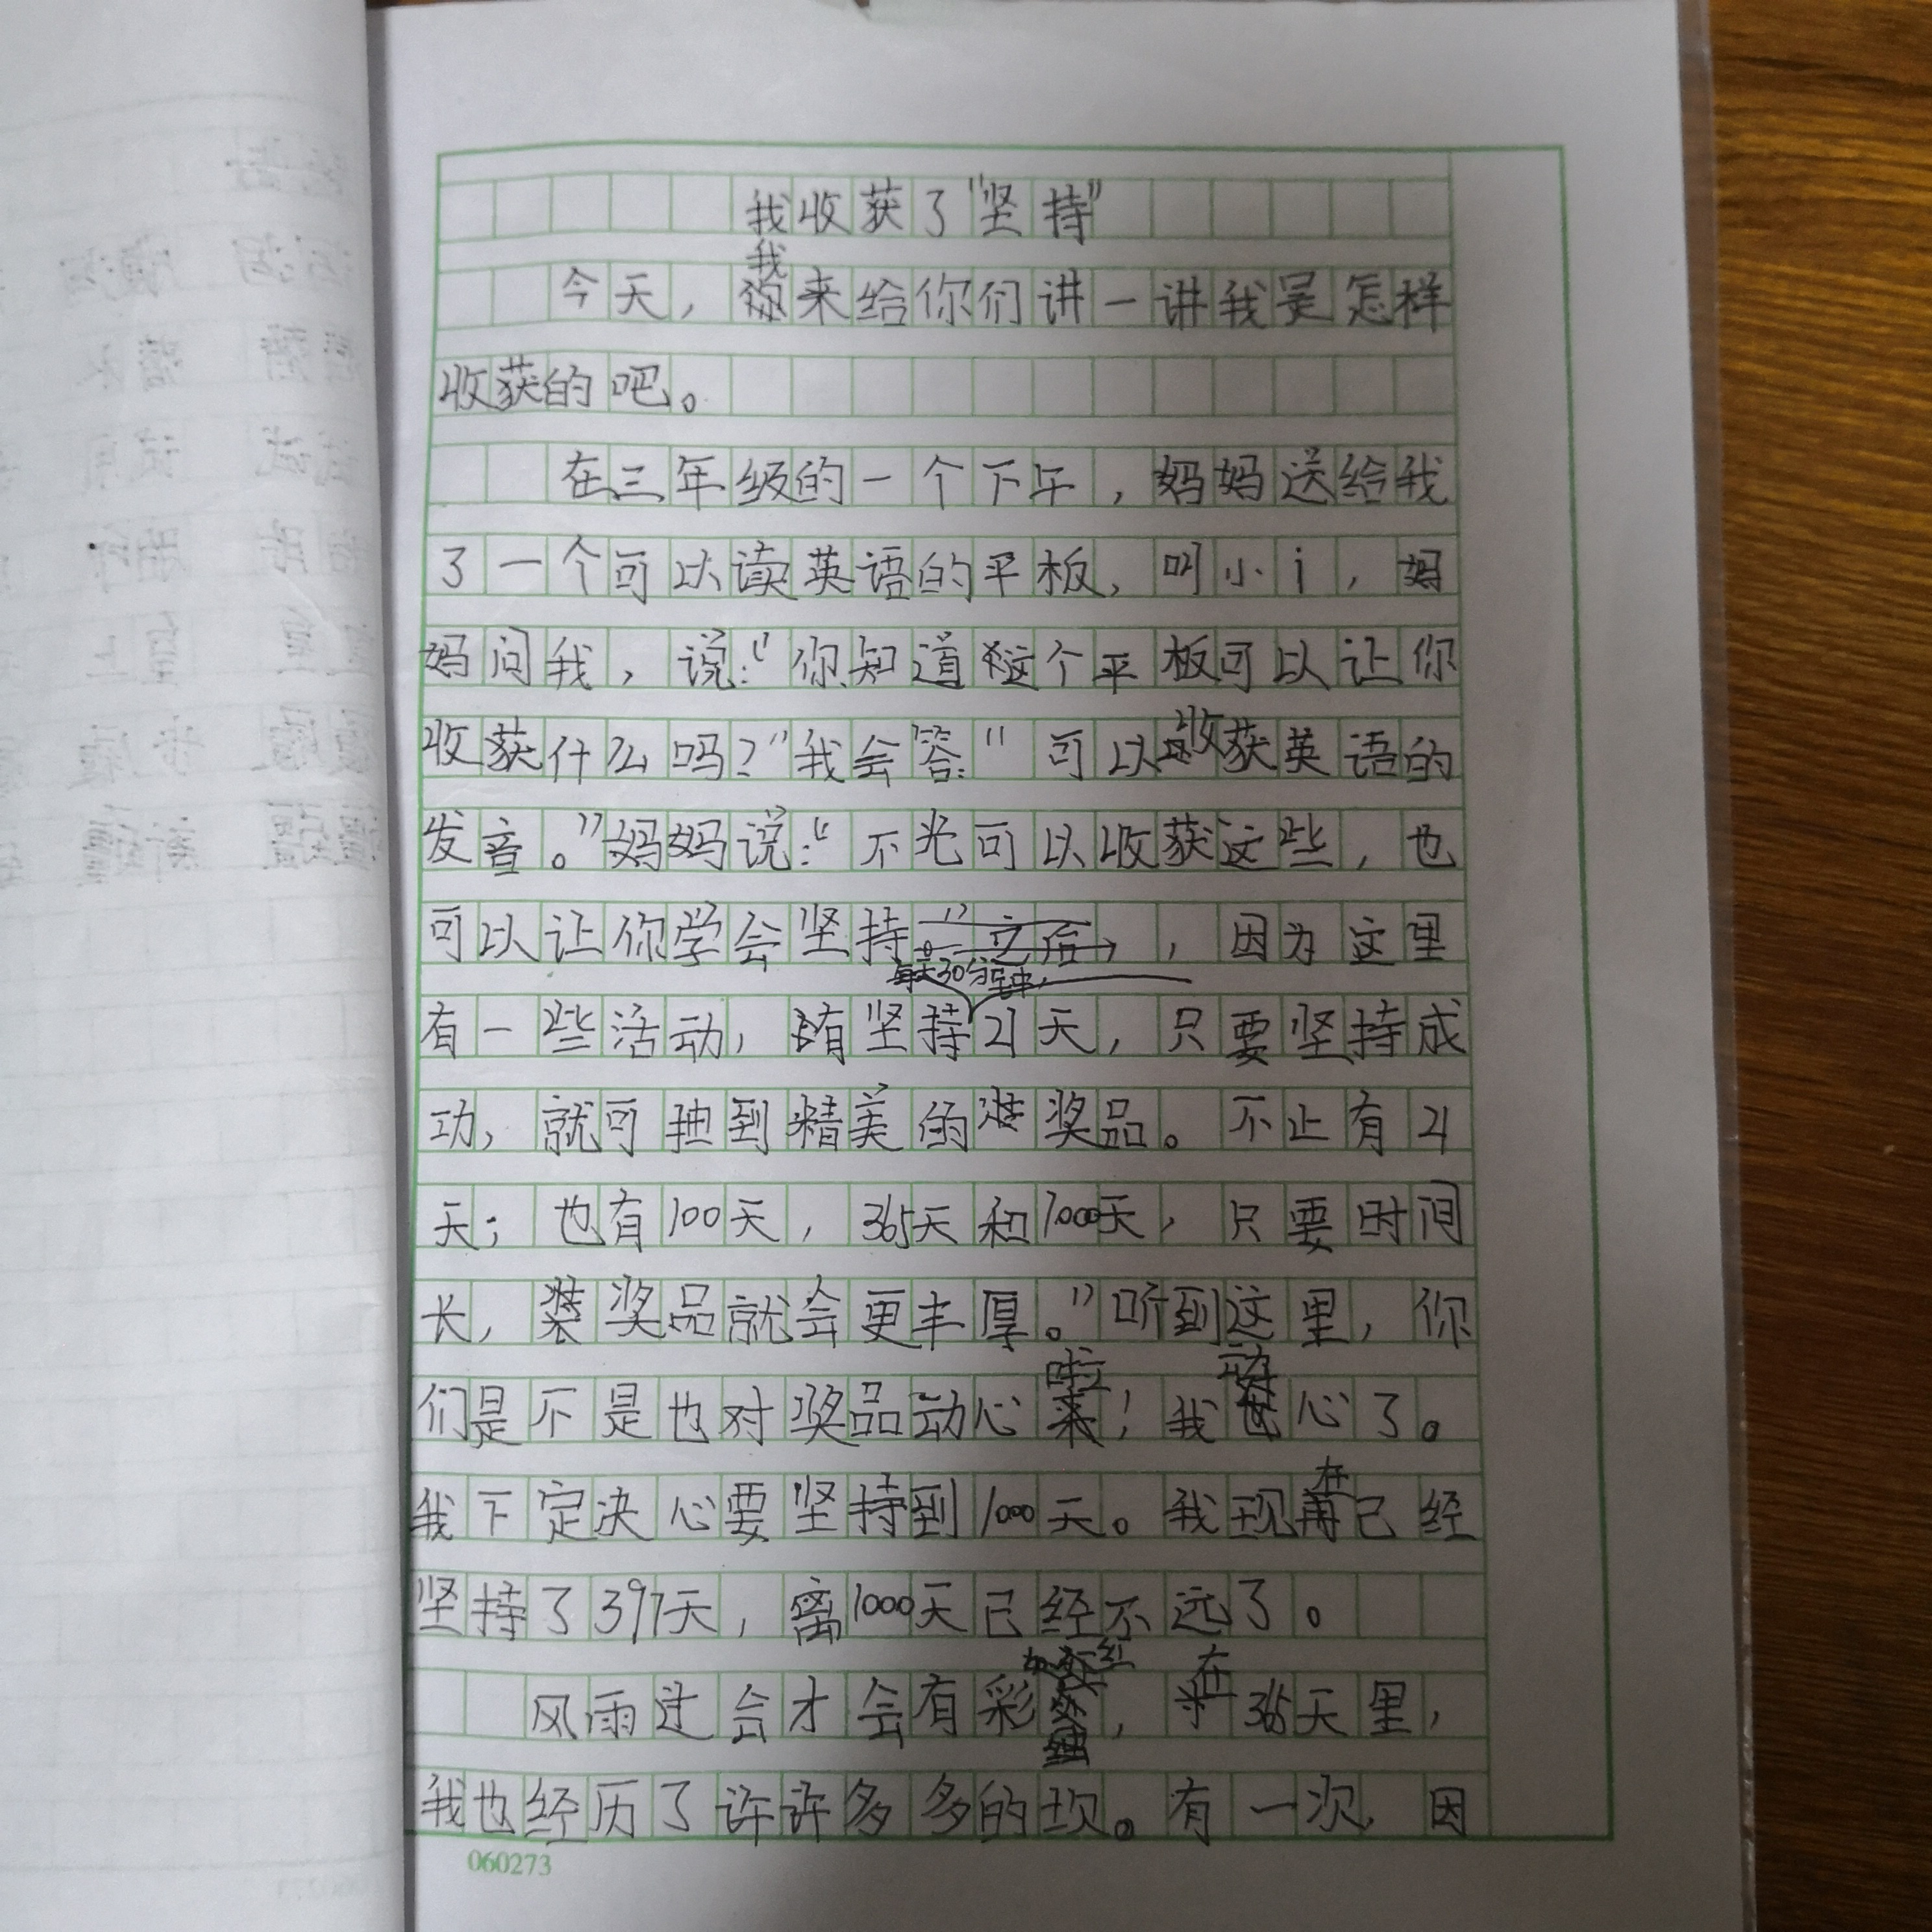 我收获了“坚持”
今天，我来给你们讲一讲我是怎样
收获的吧。
在三年级的一个下午，妈妈送给我
了一个可以读英语的平板，叫小i，妈
妈问我，说：“你知道这个平板可以让你
收获什么吗？”我会答：“可以收获英语的
发音。”妈妈说：“不光可以收获这些，也
可以让你学会坚持，因为这里
每天30分钟
有一些活动，有坚持21天，只要坚持成
功，就可抽到精美的奖品。不止有21
天；也有100天，365天和1000天，只要时间
长，奖品就会更丰厚。”听到这里，你
们是不是也对奖品动心啦！我动心了。
我下定决心要坚持到1000天。我现在已经
坚持了397天，离1000天已经不远了。
风雨过会才会有彩虹，在365天里，
我也经历了许许多多的坎。有一次，因
060273